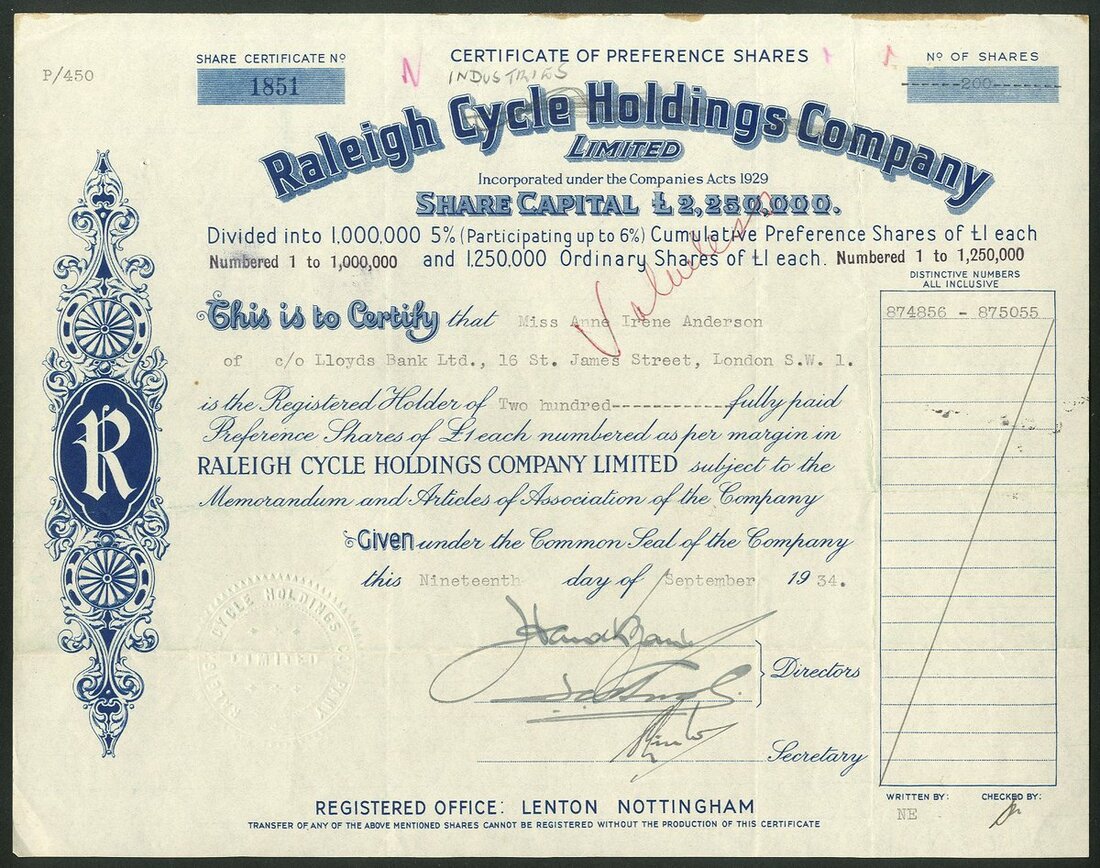 P/450
SHARE CERTIFICATE Nº
1851
CERTIFICATE OF PREFERENCE SHARES
Nº OF SHARES
------200-------
N
INDUSTRIES
Raleigh Cycle Holdings Company
LIMITED
Incorporated under the Companies Acts 1929
SHARE CAPITAL £2,250,000.
Divided into 1,000,000 5% (Participating up to 6%) Cumulative Preference Shares of £1 each
Numbered 1 to 1,000,000 and 1,250,000 Ordinary Shares of £1 each. Numbered 1 to 1,250,000
Valueless
DISTINCTIVE NUMBERS
ALL INCLUSIVE
874856 - 875055
This is to Certify that Miss Anne Irene Anderson
of c/o Lloyds Bank Ltd., 16 St. James Street, London S.W. 1.
is the Registered Holder of Two hundred------------fully paid
Preference Shares of £1 each numbered as per margin in
RALEIGH CYCLE HOLDINGS COMPANY LIMITED subject to the
Memorandum and Articles of Association of the Company
R
Given under the Common Seal of the Company
this Nineteenth day of September 1934.
RALEIGH CYCLE HOLDINGS COMPANY
LIMITED
Directors
Secretary
WRITTEN BY:
NE
CHECKED BY:
REGISTERED OFFICE: LENTON NOTTINGHAM
TRANSFER OF ANY OF THE ABOVE MENTIONED SHARES CANNOT BE REGISTERED WITHOUT THE PRODUCTION OF THIS CERTIFICATE